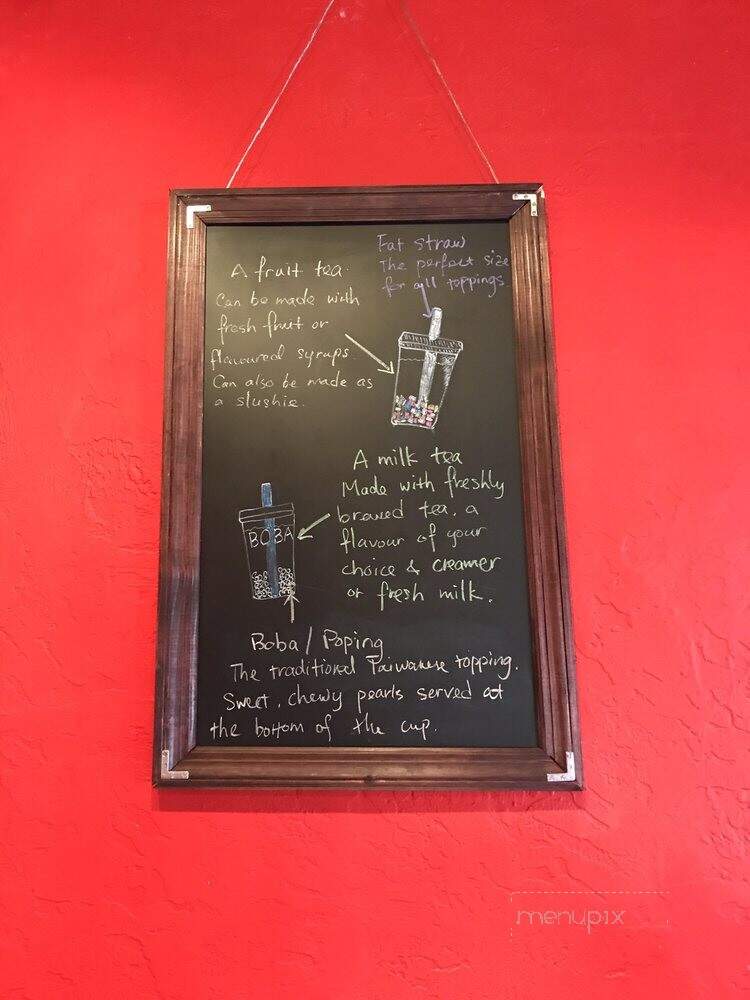 Fat straw
The perfect size
for all toppings
A fruit tea.
Can be made with
fresh fruit or
flavoured syrups.
Can also be made as
a slushie.
A milk tea
Made with freshly
brewed tea, a
flavour of your
choice & creamer
or fresh milk.
BOBA
Boba / Poping
The traditional Taiwanese topping.
Sweet, chewy pearls served at
the bottom of the cup.
menupix